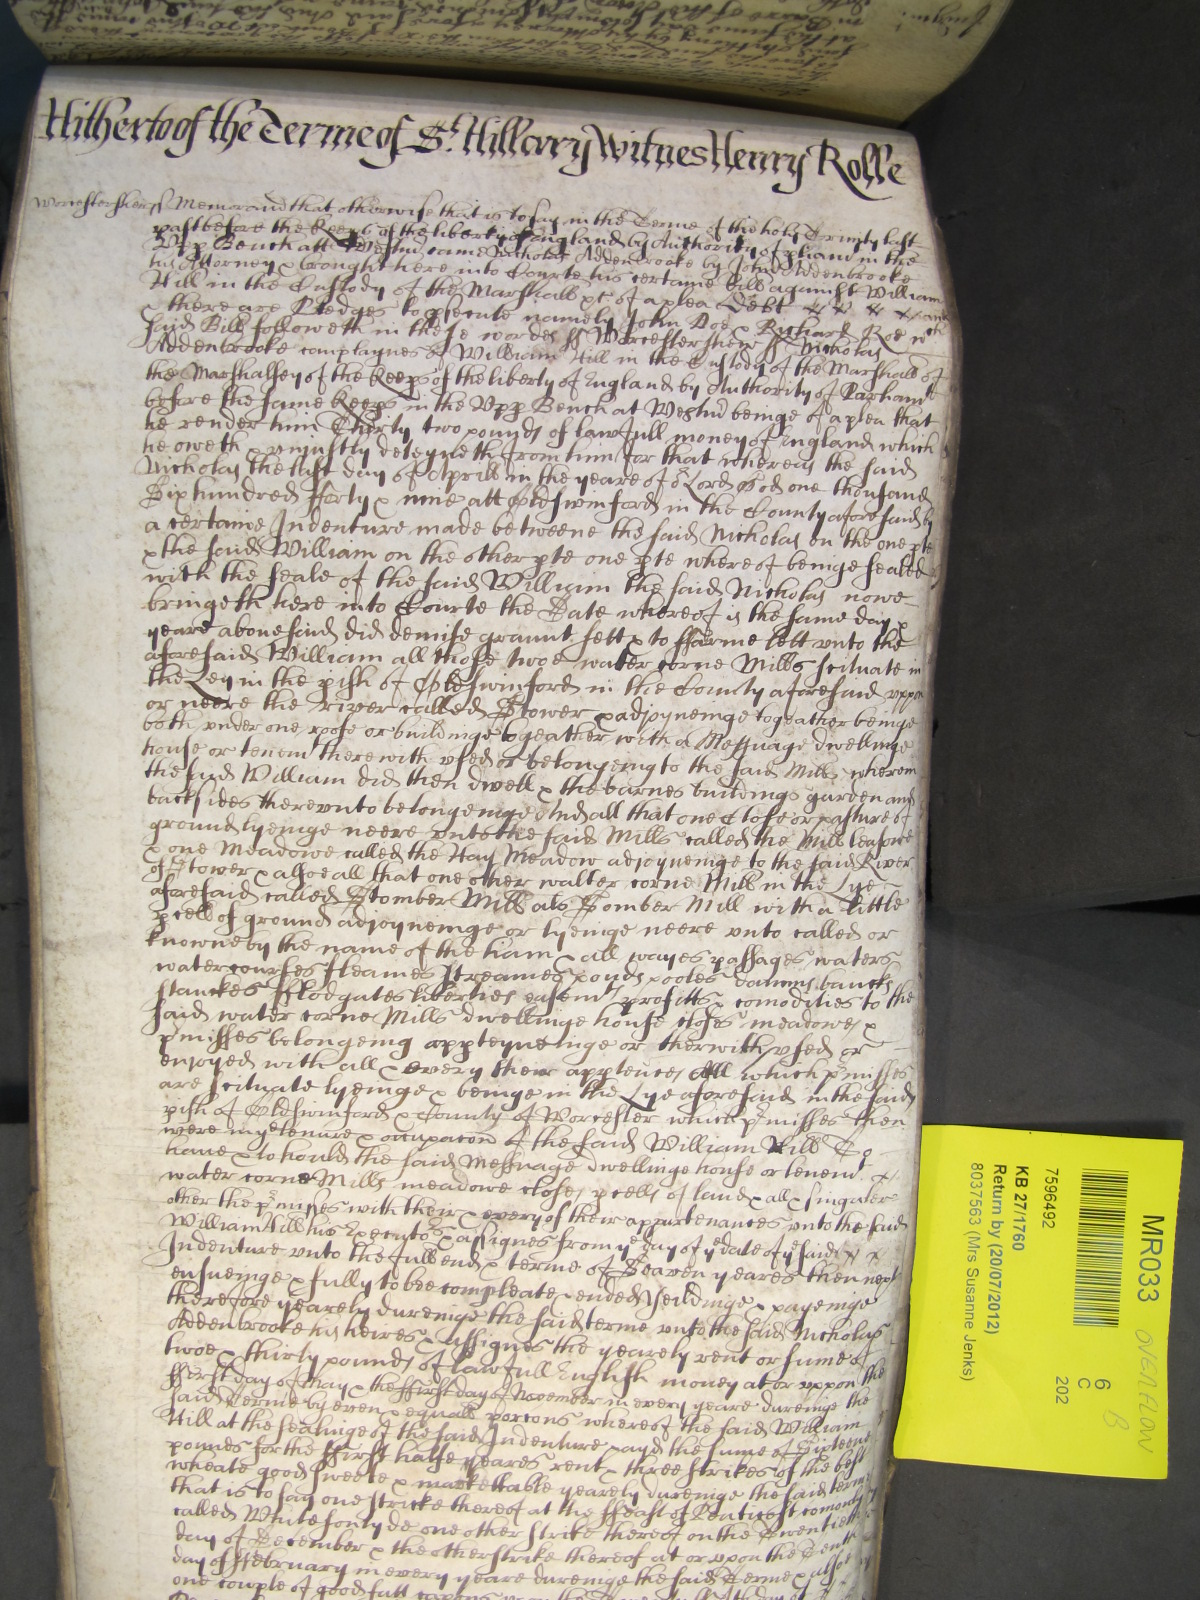 Hitherto of the Terme of St. Hillary Witnes Henry Rolle
Worcestershire ss Memorand that otherwise that is to say in the Terme of the holy Trinity last
past before the Keeps of the liberty of England by Authority of pliamt in the
Upp Bench att Westmr came Nicholas Addenbrooke by John Addenbrooke
his Attorney & brought here into Courte his certaine bill against William
Hill in the Custody of the Marshall &c of a plea Debt & & & & And
there are Pledges to psecute namely John Doe & Richard Roe wch
said Bill followeth in these wordes ss Worcestersheir ss Nicholas
Addenbrooke complaynes of William Hill in the Custody of the Marshall of
the Marshallsey of the Keeps of the liberty of England by Authority of Parliamt
before the same Keeps in the Upp Bench at Westmr beinge of a plea that
he render him Thirty two pounds of lawfull money of England which
he oweth & unjustly deteyneth from him for that whereas the said
Nicholas the last day of Aprill in the yeare of or Lord God one thousand
Six hundred fforty & nine att Oldswinford in the County aforesaid by
a certaine Indenture made betweene the said Nicholas on the one pte
& the said William on the other pte one pte whereof beinge sealed
with the seale of the said William the said Nicholas nowe
bringeth here into Courte the Date whereof is the same day &
yeare abovesaid did demise graunt sett & to ffarme lett unto the
aforesaid William all those twoe water corne Mills scituate in
the Ley in the pish of Oldswinford in the County aforesaid uppon
or neere the river called Stower & adjoyneinge togeather beinge
both under one roofe or buildinge togeather with a Messuage dwellinge
house or tenemt therewith used or belongeing to the said Mills wherein
the said William did then dwell & the barnes buildings garden and
backsides thereunto belongeinge And all that one Close or pasture of
ground lyeinge neere unto the said Mills called the Mill leasowe
& one Meadowe called the Hay Meadow adjoyneinge to the said River
of Stower & alsoe all that one other watter corne Mill in the Lye
aforesaid called Stomber Mill als Somber Mill with a little
pcell of ground adjoyneinge or lyeinge neere unto called or
knowne by the name of the ham & all wayes passages waters
watercourses fleames streames ponds pooles damms bancks
stanckes fflodgates liberties easemts profitts & comodities to the
said water corne Mills dwellinge house closes meadowes &
pmisses belongeing appteyneinge or therwith used or
enjoyed with all & every their apptences All which pmisses
are scituate lyeinge & beinge in the Lye aforesaid in the said
pish of Oldswinford & County of Worcester which pmisses then
were in ye tenure & occupacon of the said William Hill To
have & to hould the said Messuage dwellinge house or tenemt &
water corne Mills meadowe closes pcells of land & all & singuler
other the pmisses with their & every of their appurtenances unto the said
William Hill his Executors & assignes from ye day of ye date of ye said & &
Indenture unto the full end & terme of Seaven yeares then next
ensueinge & fully to bee compleate & ended Yeildinge & payeinge
therefore yearely dureinge the said terme unto the said Nicholas
Addenbrooke his heires & Assignes the yearely rent or sume of
twoe & thirty pounds of lawfull English money at or uppon the
ffirst day of May & the ffirst day of November in every yeare dureinge the
said Terme by even & equall porcons whereof the said William
Hill at the sealinge of the said Indenture payd the sume of Sixteene
pounds for the ffirst halfe yeares rent & three strikes of the best
wheate good sweete & markettable yearely dureinge the said terme
that is to say one stricke thereof at the ffeast of Penticost comonly
called Whitsontyde one other strike thereof on the Twentieth
day of December & the other strike thereof at or upon the Tenth
day of ffebruary in every yeare dureinge the said Terme & alsoe
one couple of good fatt capons
MR033
OVERFLOW
B
6
C
202
7596492
KB 27/1760
Return by (20/07/2012)
8037563 (Mrs Susanne Jenks)